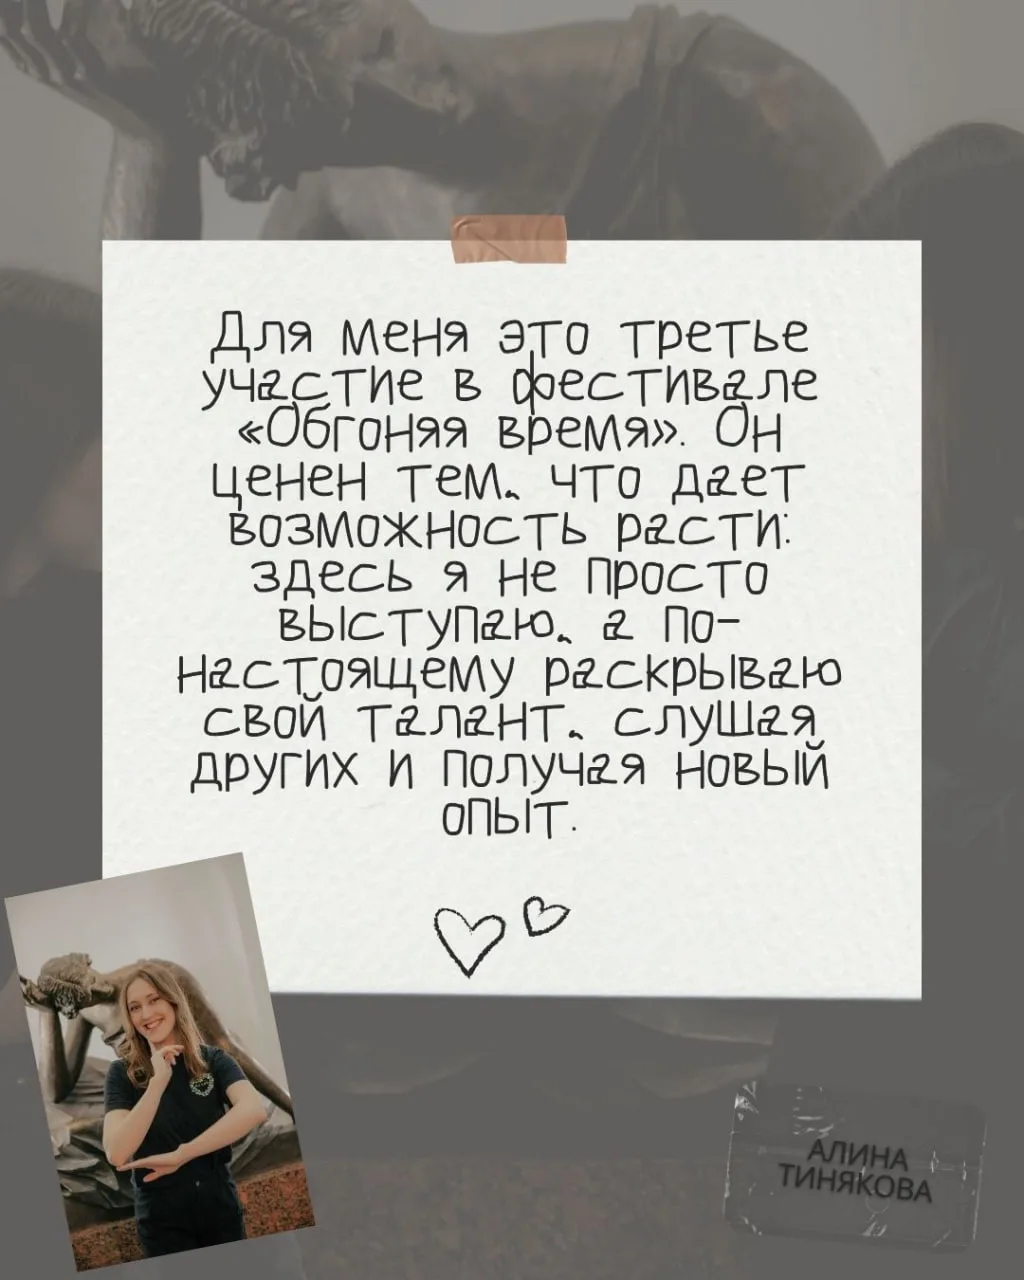 Для меня это третье
участие в фестивале
«Обгоняя время». Он
ценен тем, что дает
возможность расти:
здесь я не просто
выступаю, а по-
настоящему раскрываю
свой талант, слушая
других и получая новый
опыт.
АЛИНА
ТИНЯКОВА